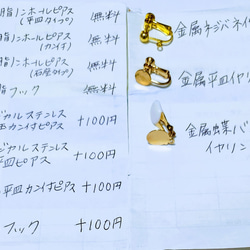 脂ノンホールピアス
(平皿タイプ) 無料
脂ノンホールピアス
(カン付) 無料
脂ノンホールピアス
(石座タイプ) 無料
脂フック 無料
ジカルステンレス
玉カン付ピアス +100円
ジカルステンレス
平皿ピアス +100円
平皿カン付ピアス +100円
フック +100円
金属ネジバネイ
金属平皿イヤリ
金属蝶バ
イヤリン